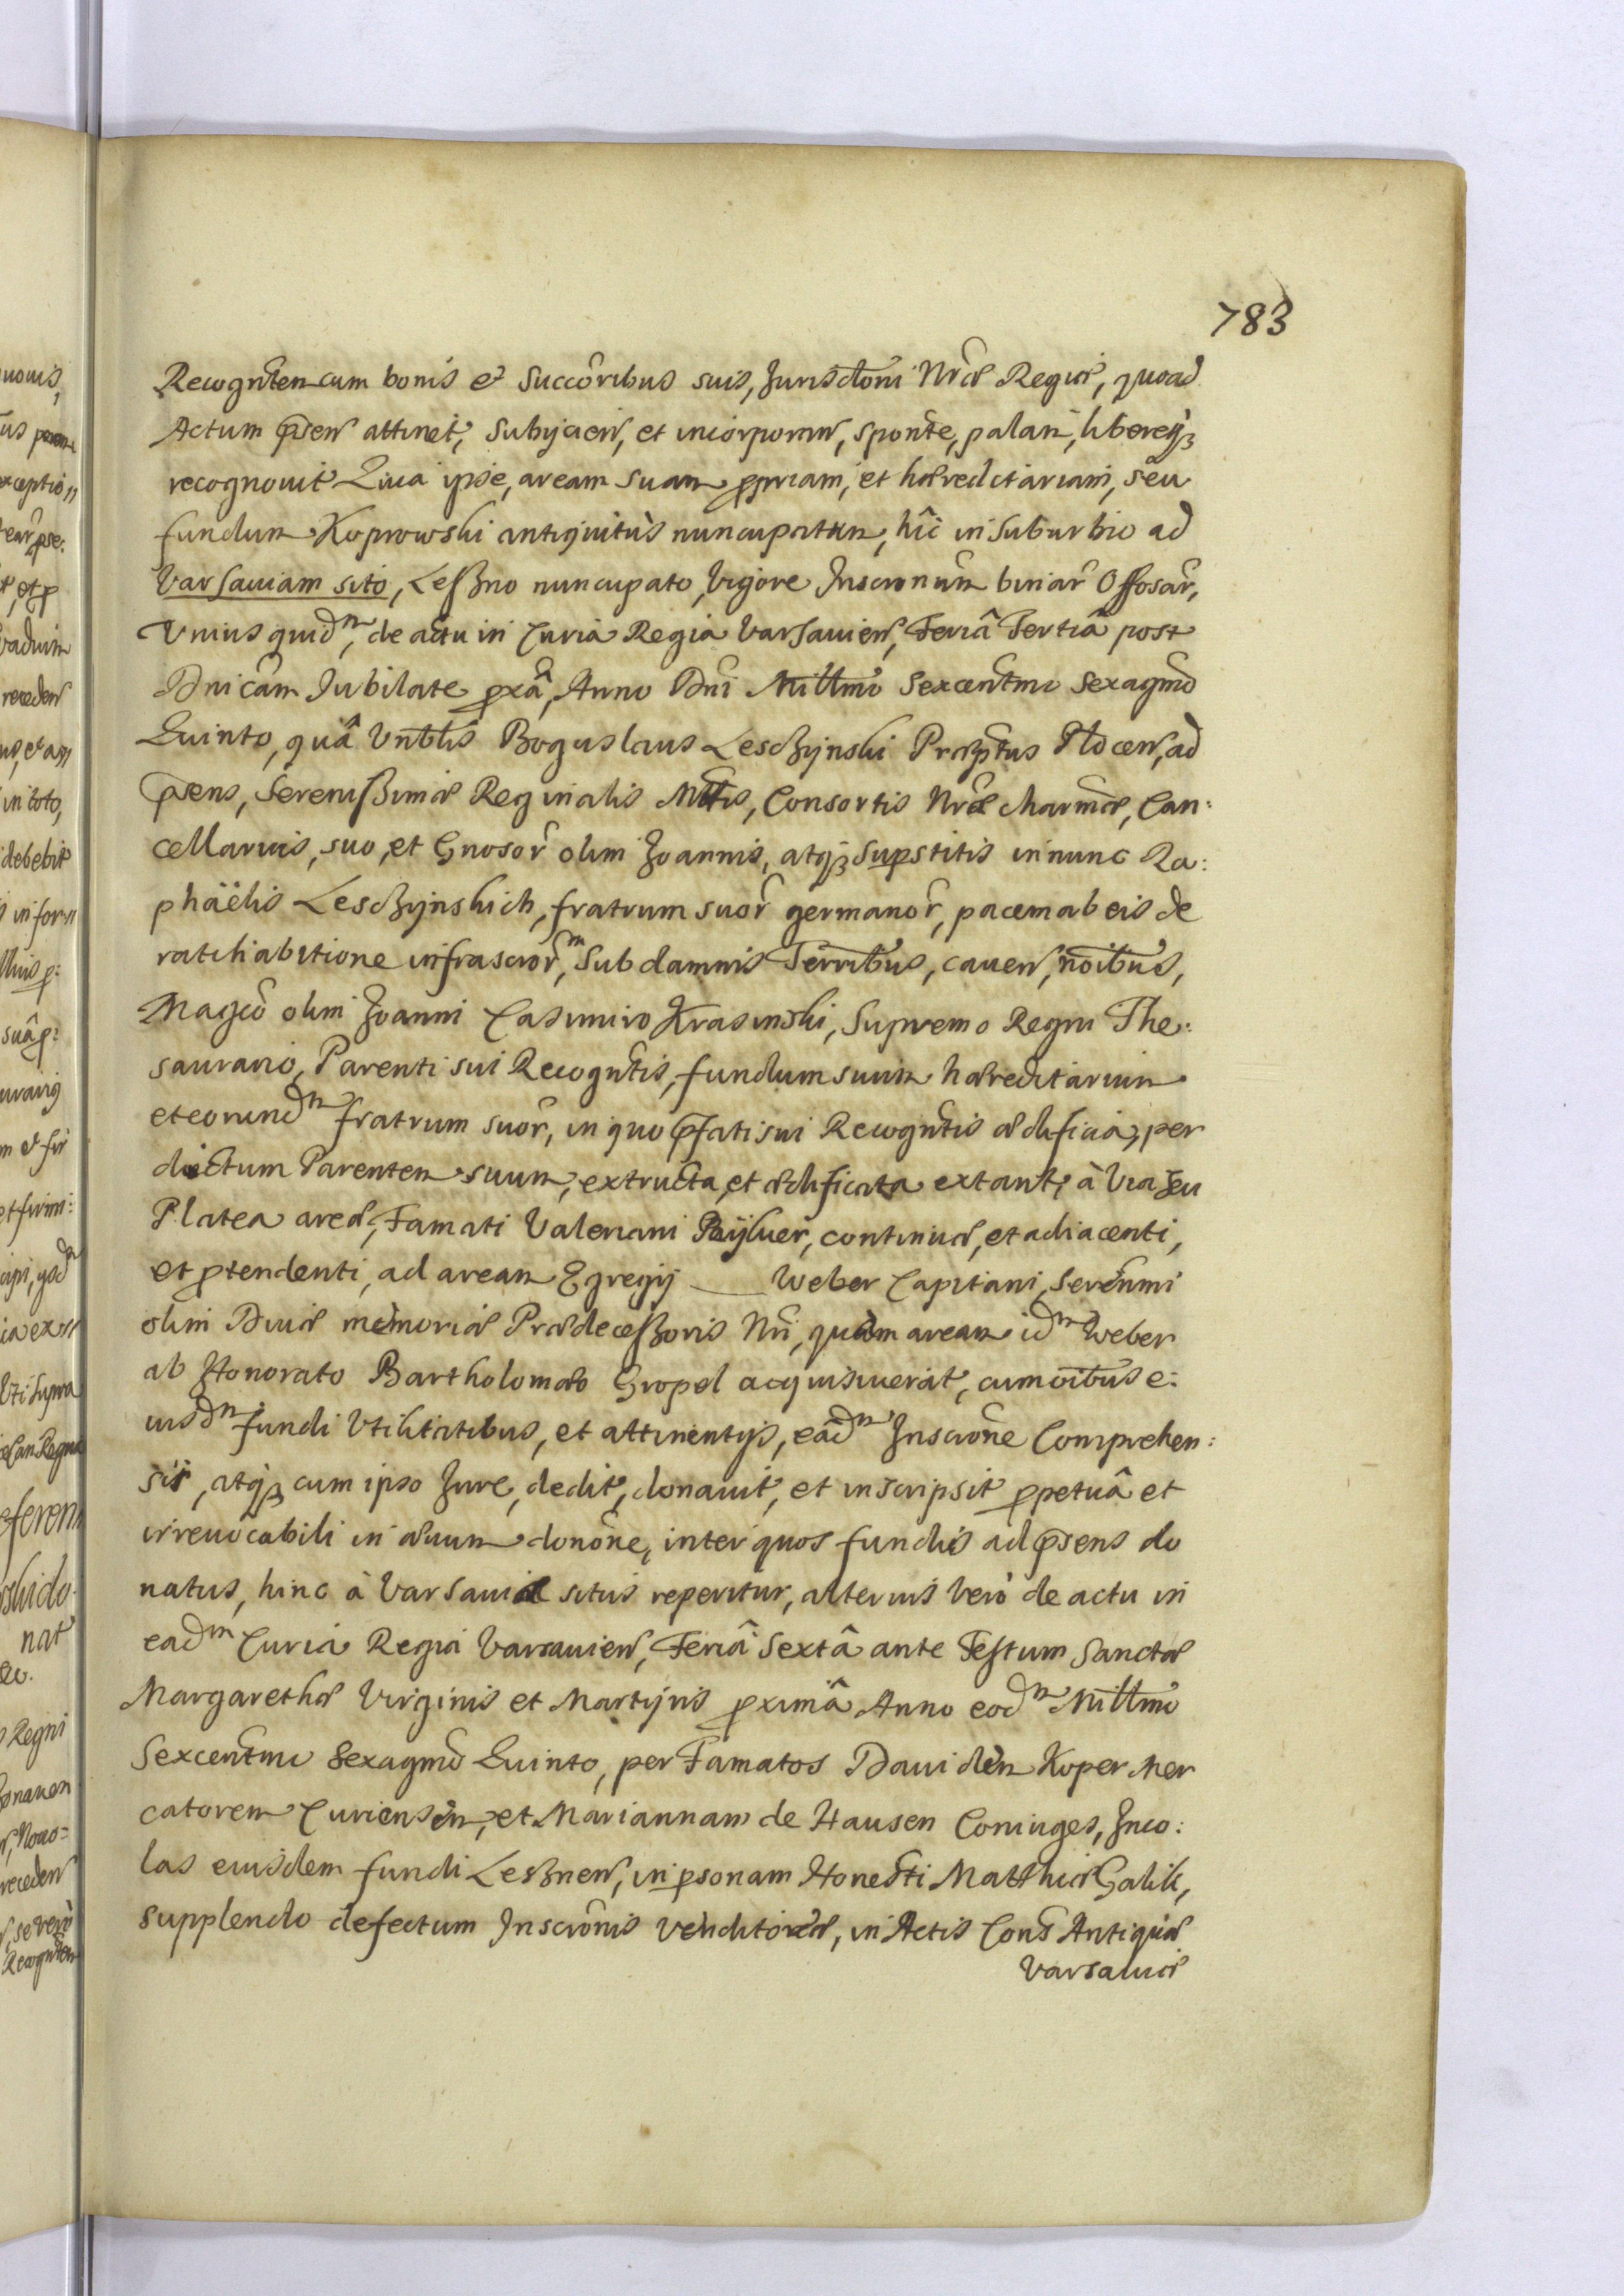 783
Recogñten cum bonis et Succõribus suis, Jurisdtõni Nræ Regiæ, quoad
Actum p̃sen attinet, subijcien, et incorporan, sponte, palam, libereq3
recognovit Quia ipse, aream suam ppriam, et hæreditariam, seu
fundum Koprowski antiquitùs nuncupatum, hîc in suburbio ad
Varsaviam sito, Leßno nuncupato, vigore Inscrionum binar̃ Offosar̃,
Vnius quidm, de actu in Curia Regia Varsavien, Feriâ Tertiâ post
Dnicam Iubilate pxâ, Anno Dni Millmo Sexcentmo Sexagmo
Quinto, quâ Vnblis Boguslaus Leschzijnski Præptus Plocen, ad
p̃sens, Serenißimæ Reginalis Mttis, Consortis Nræ Charmæ, Can:
cellarius, suo, et Gnosor̃ olim Joannis, atq3 supstitis in nunc Ra:
phäelis Leschzijnskich, fratrum suor̃ germanor̃, pacem ab eis de
ratihabitione infrascror̃m, sub damnis Terribus, caven, noibus,
Magco olim Joanni Casimiro Krasinski, Supremo Regni The:
saurario, Parenti sui Recogntis, fundum suum hæreditarium
et eorundm fratrum suor̃, in quo pfati sui Recogntis ædificia, per
dictum Parentem suum, extructa, et ædificata extant, à Via seu
Platea areæ, Famati Valeriani Rÿlver, continuæ, et adiacenti,
et ptendenti, ad aream Egregij __ Weber Capitani, Serenmi
olim Divæ memoriæ Prædeceßoris Nri, quam aream idm Weber
ab Honorato Bartholomæo Gropel acquisiuerat, cum oibus e:
iusdm fundi Vtilitatibus, et attinentijs, eadm Inscrione Comprehen:
sis, atq3 cum ipso Jure, dedit, donauit, et inscripsit ppetuâ et
irreuocabili in ævum donone, inter quos fundus ad p̃sens do
natus, hinc à Varsaviæ situs reperitur, alterius vero de actu in
eadm Curia Regia Varsavien, Feriâ Sextâ ante Festum Sanctæ
Margarethæ Virginis et Martyris pximâ Anno eodm Millmo
Sexcentmo Sexagmo Quinto, per Famatos Dauidem Koper Mer
catorem Curiensem, et Mariannam de Hausen Coniuges, Inco:
las eiusdem fundi Leßnen, in psonam Honesti Matthiæ Galik,
supplendo defectum Inscrionis venditoriæ, in Actis Cons Antiquæ
Varsaviæ